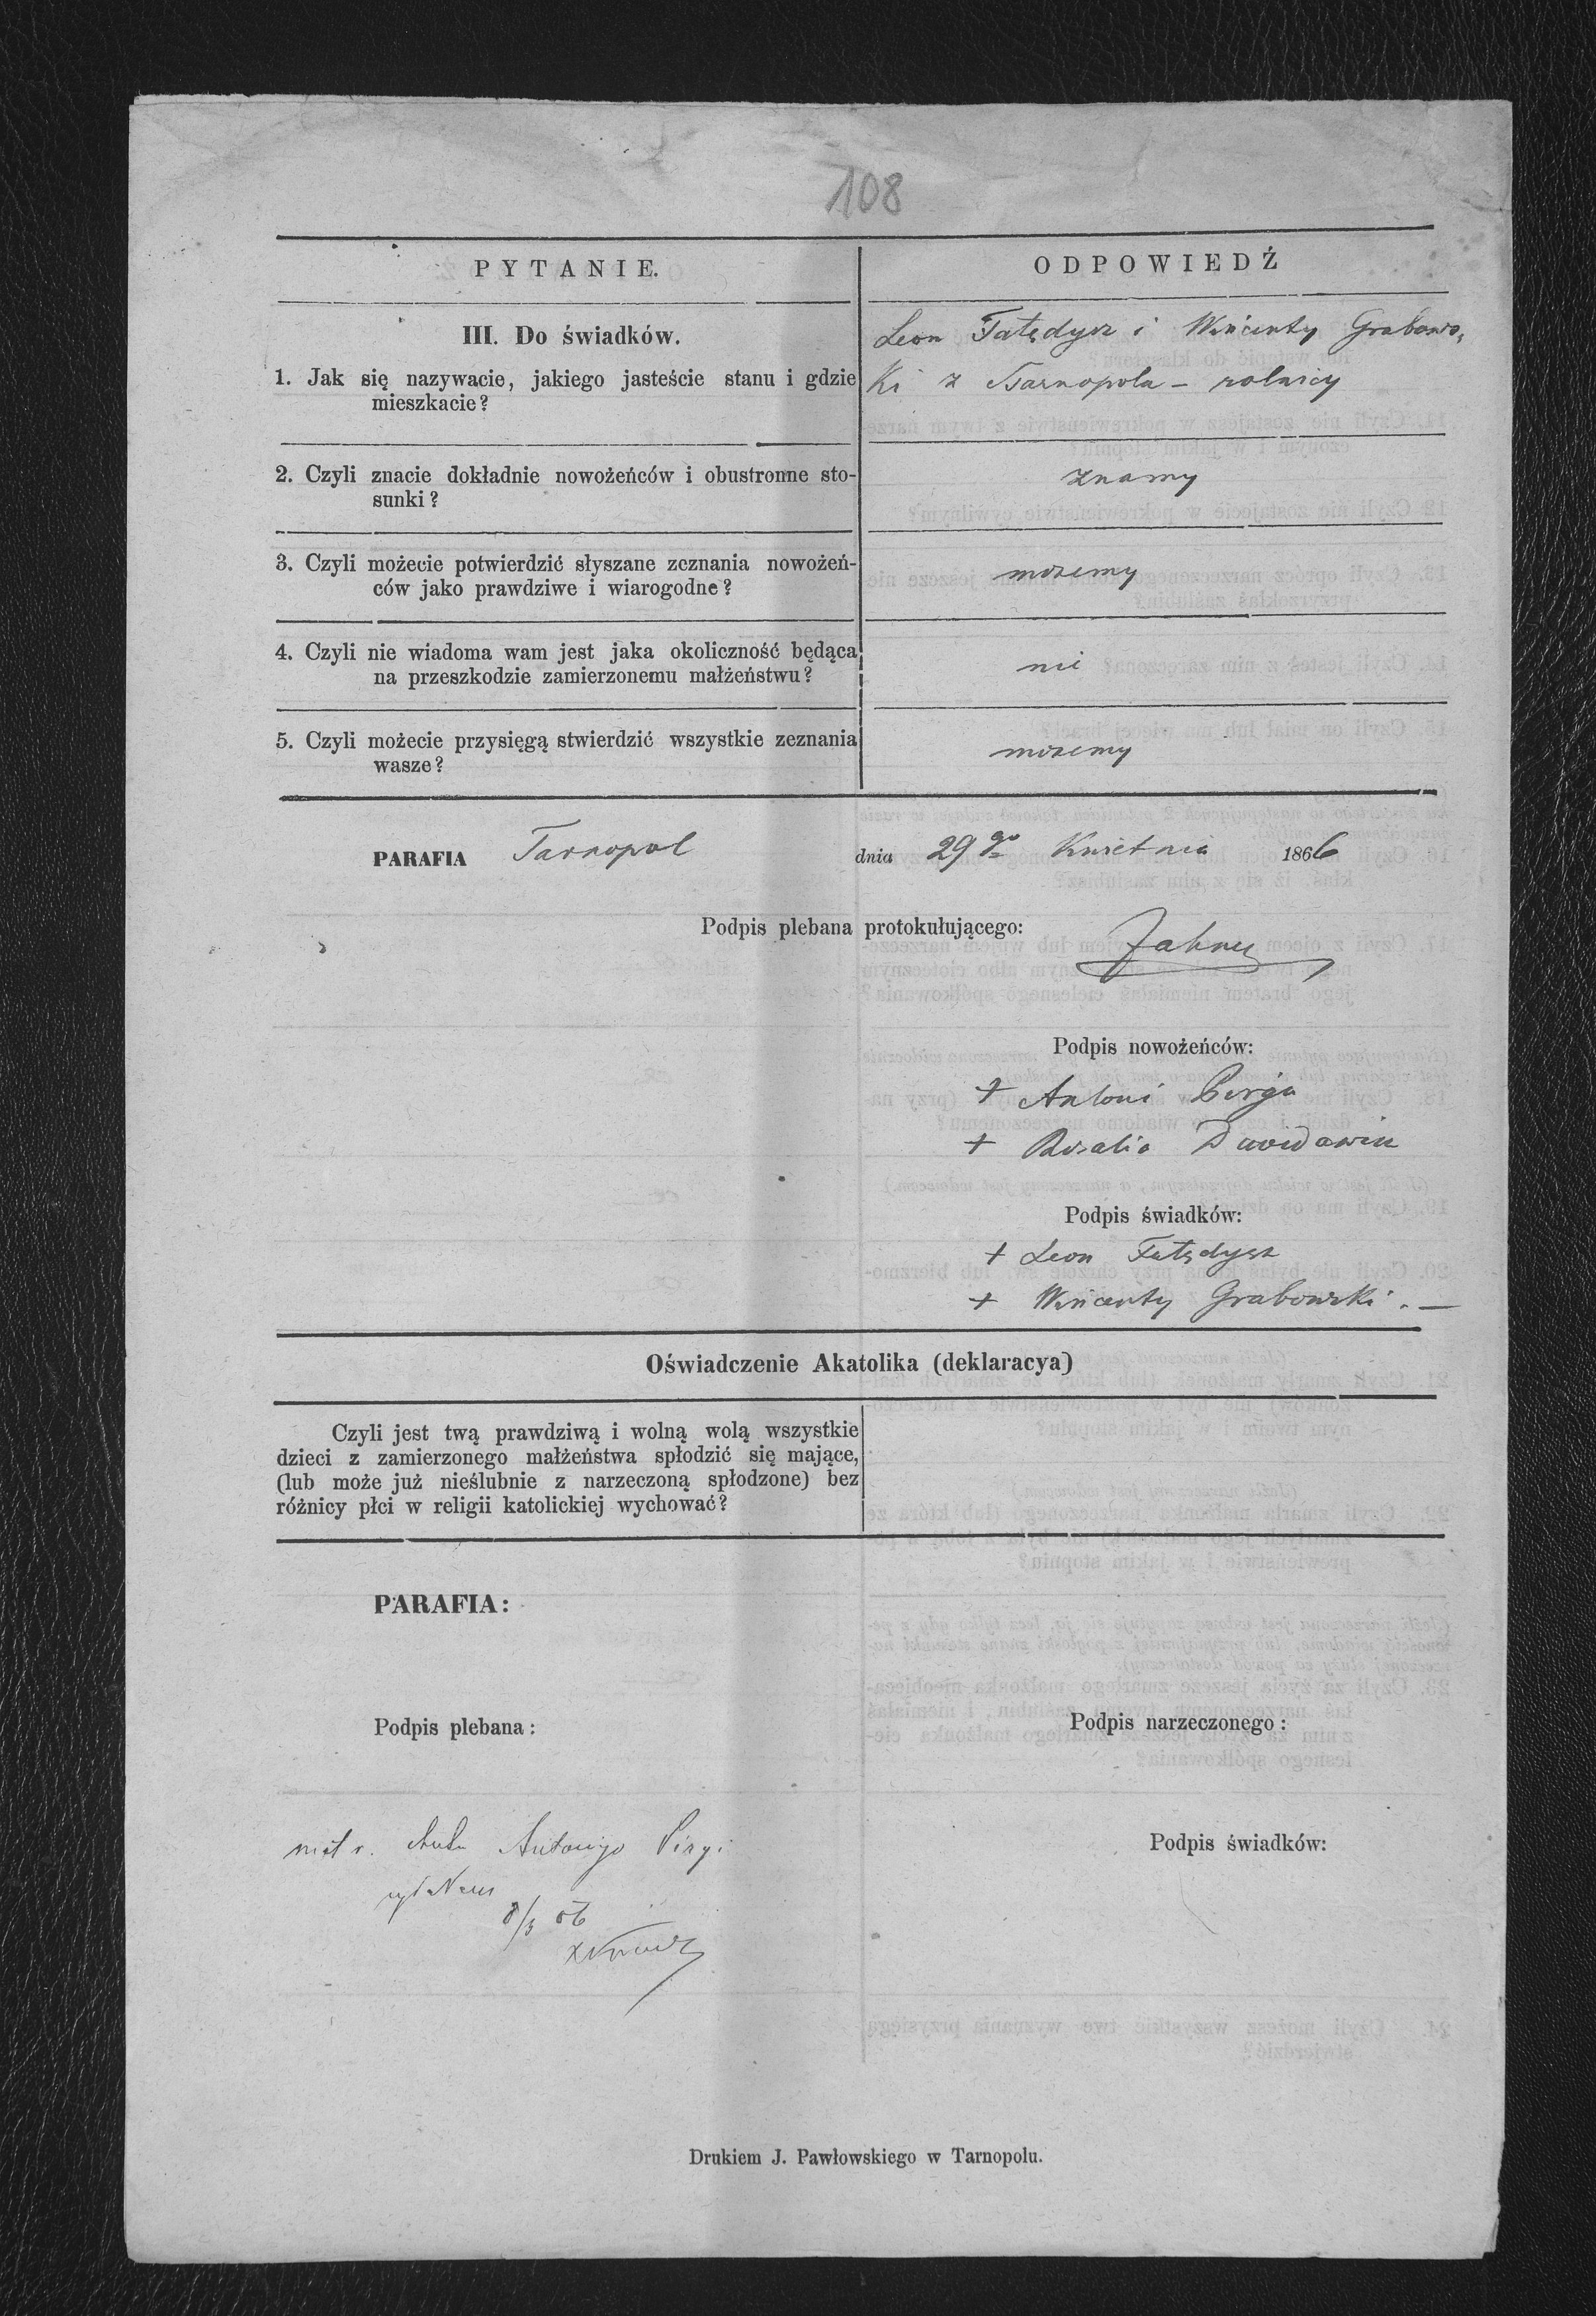 108
PYTANIE.
ODPOWIEDŹ
III. Do świadków.
1. Jak się nazywacie, jakiego jasteście stanu i gdzie
mieszkacie?
Leon Fatędysz i Wincenty Grabows-
ki z Tarnopola – rolnicy
2. Czyli znacie dokładnie nowożeńców i obustronne sto-
sunki?
znamy
3. Czyli możecie potwierdzić słyszane zcznania nowożeń-
ców jako prawdziwe i wiarogodne?
możemy
4. Czyli nie wiadoma wam jest jaka okoliczność będąca
na przeszkodzie zamierzonemu małżeństwu?
nie
5. Czyli możecie przysięgą stwierdzić wszystkie zeznania
wasze?
możemy
PARAFIA Tarnopol dnia 29go Kwietnia 1866
Podpis plebana protokułującego:
Podpis nowożeńców:
+ Antoni
+ Rozalia
Podpis świadków:
+ Leon Fatędysz
+ Wincenty Grabowski . —
Oświadczenie Akatolika (deklaracya)
Czyli jest twą prawdziwą i wolną wolą wszystkie
dzieci z zamierzonego małżeństwa spłodzić się mające,
(lub może już nieślubnie z narzeczoną spłodzone) bez
różnicy płci w religii katolickiej wychować?
PARAFIA:
Podpis plebana:
Podpis narzeczonego:
Podpis świadków:
Antoniego
8/3 06
Drukiem J. Pawłowskiego w Tarnopolu.